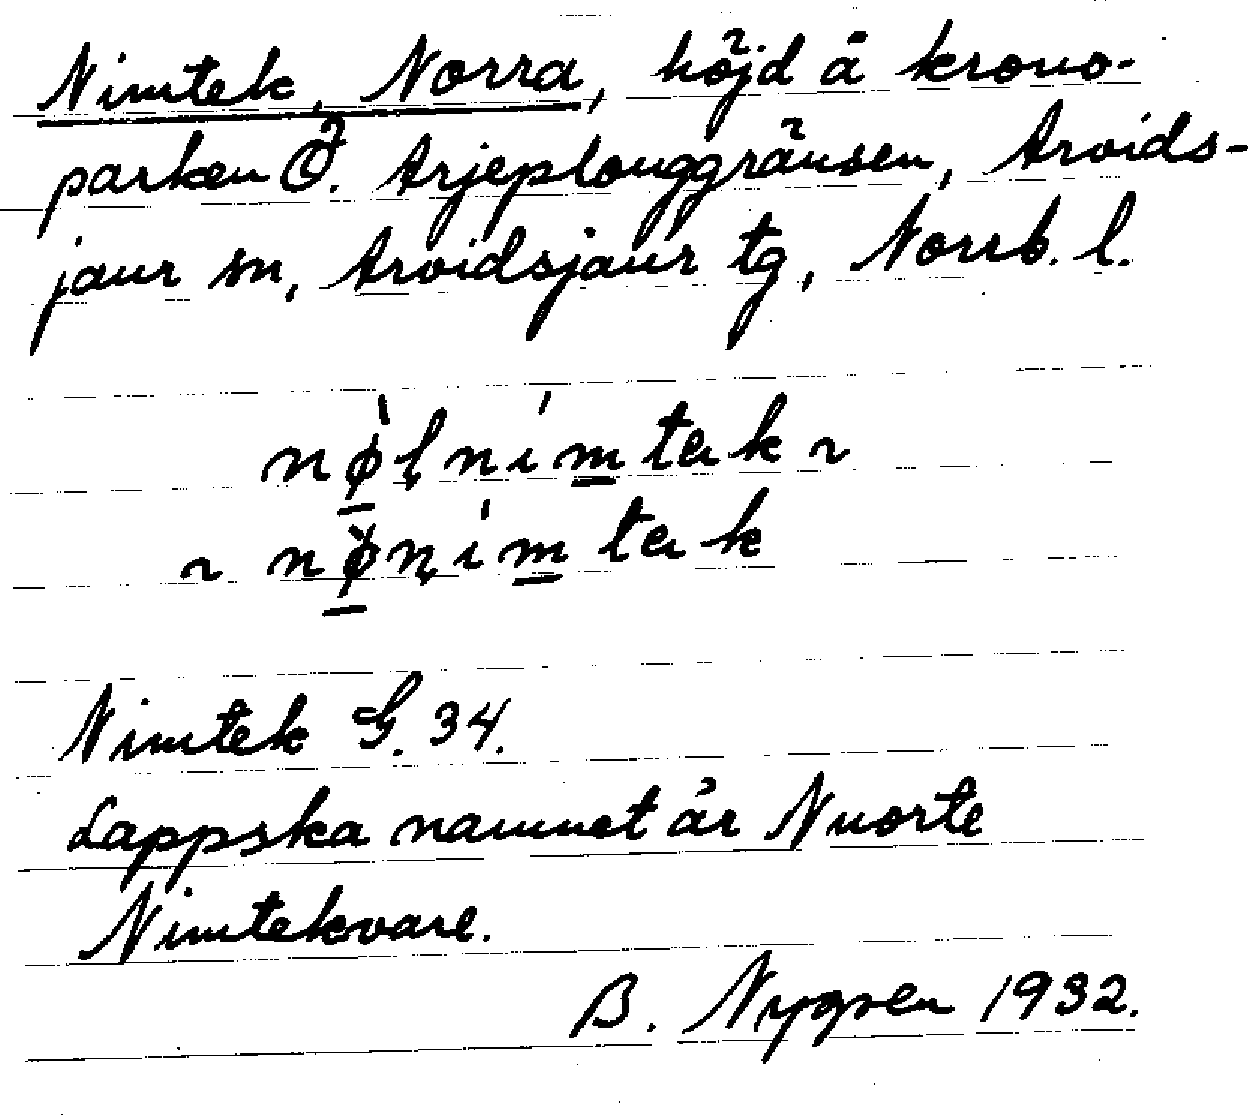 Nimtek, Norra, höjd å krono-
parken Ö. Arjeplouggränsen, Arvids-
jaur sn, Arvidsjaur tg, Norrb. l.
Nimtek G. 34.
Lappska namnet är Nuorte
Nimtekvare.
B. Nygren 1932.